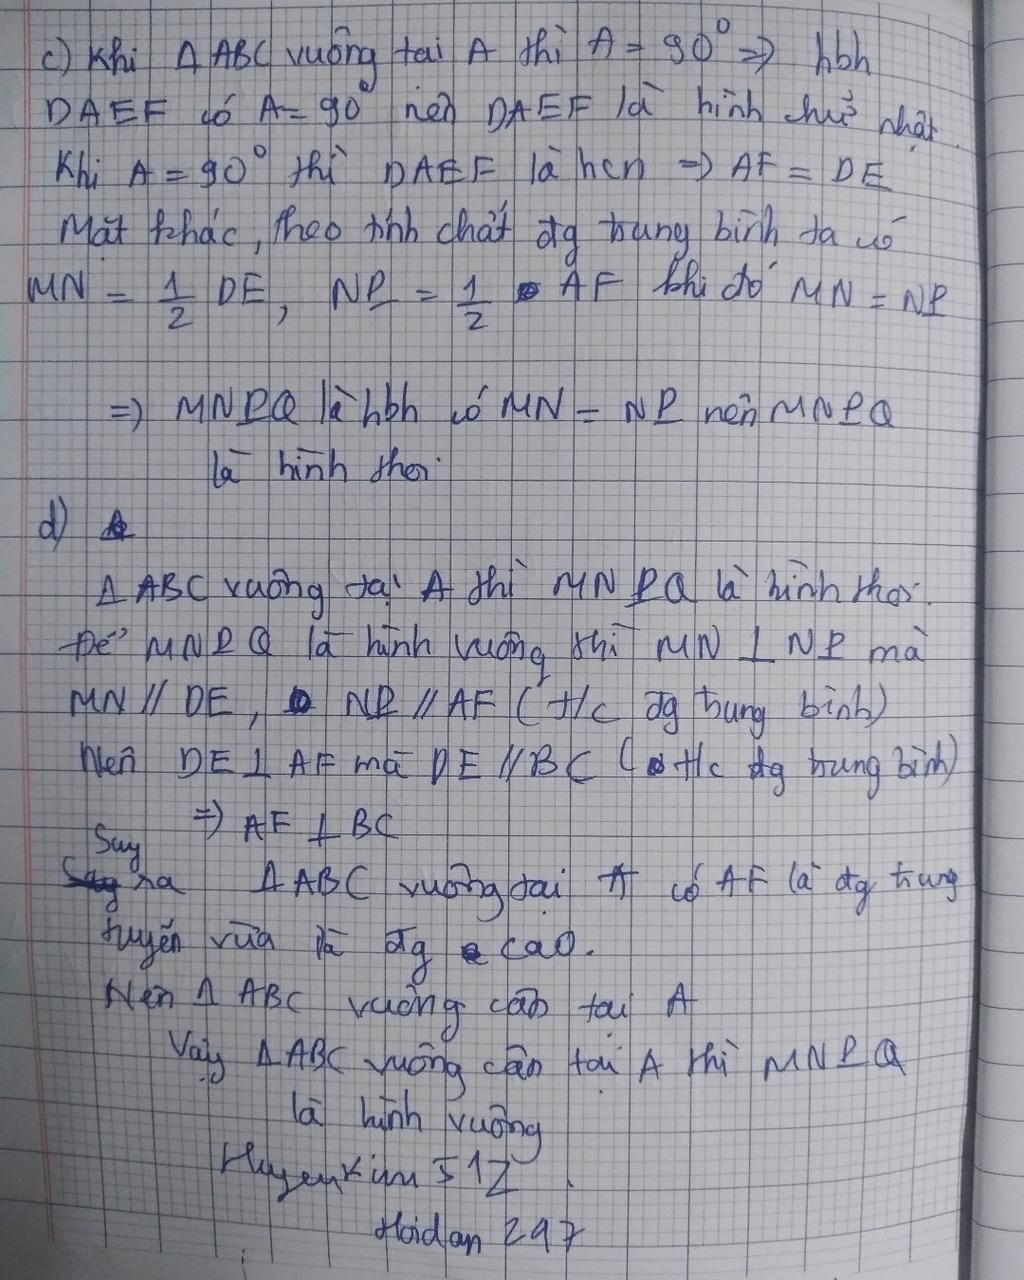 c) Khi Δ ABC vuông tại A thì A = 90° => hbh
DAEF có A = 90° nên DAEF là hình chữ nhật
Khi A = 90° thì DAEF là hcn => AF = DE
Mặt khác, theo tính chất đg trung bình ta có
MN = 1/2 DE, NP = 1/2 AF khi đó MN = NP
=> MNPQ là hbh có MN = NP nên MNPQ
là hình thoi
d)
Δ ABC vuông tại A thì MNPQ là hình thoi.
Để MNPQ là hình vuông thì MN ⊥ NP mà
MN // DE, NP // AF (t/c đg trung bình)
Nên DE ⊥ AF mà DE // BC (t/c đg trung bình)
=> AF ⊥ BC
Suy
ra Δ ABC vuông tại A có AF là đg trung
tuyến vừa là đg cao.
Nên Δ ABC vuông cân tại A
Vậy Δ ABC vuông cân tại A thì MNPQ
là hình vuông
Huyenkim512
Hoidan 247